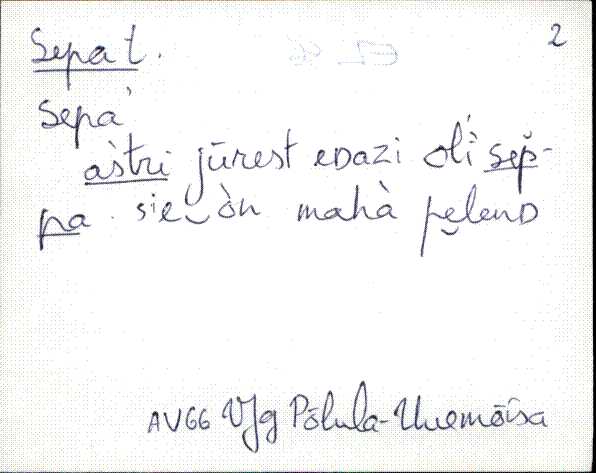 2
Sepa t.
sepa'
às̀tri jūrest eᴅazi olí sep̆-
pa. sie‿òn mahà pe̮lenᴅ
AV66 VJg Põlula-Uuemõisa